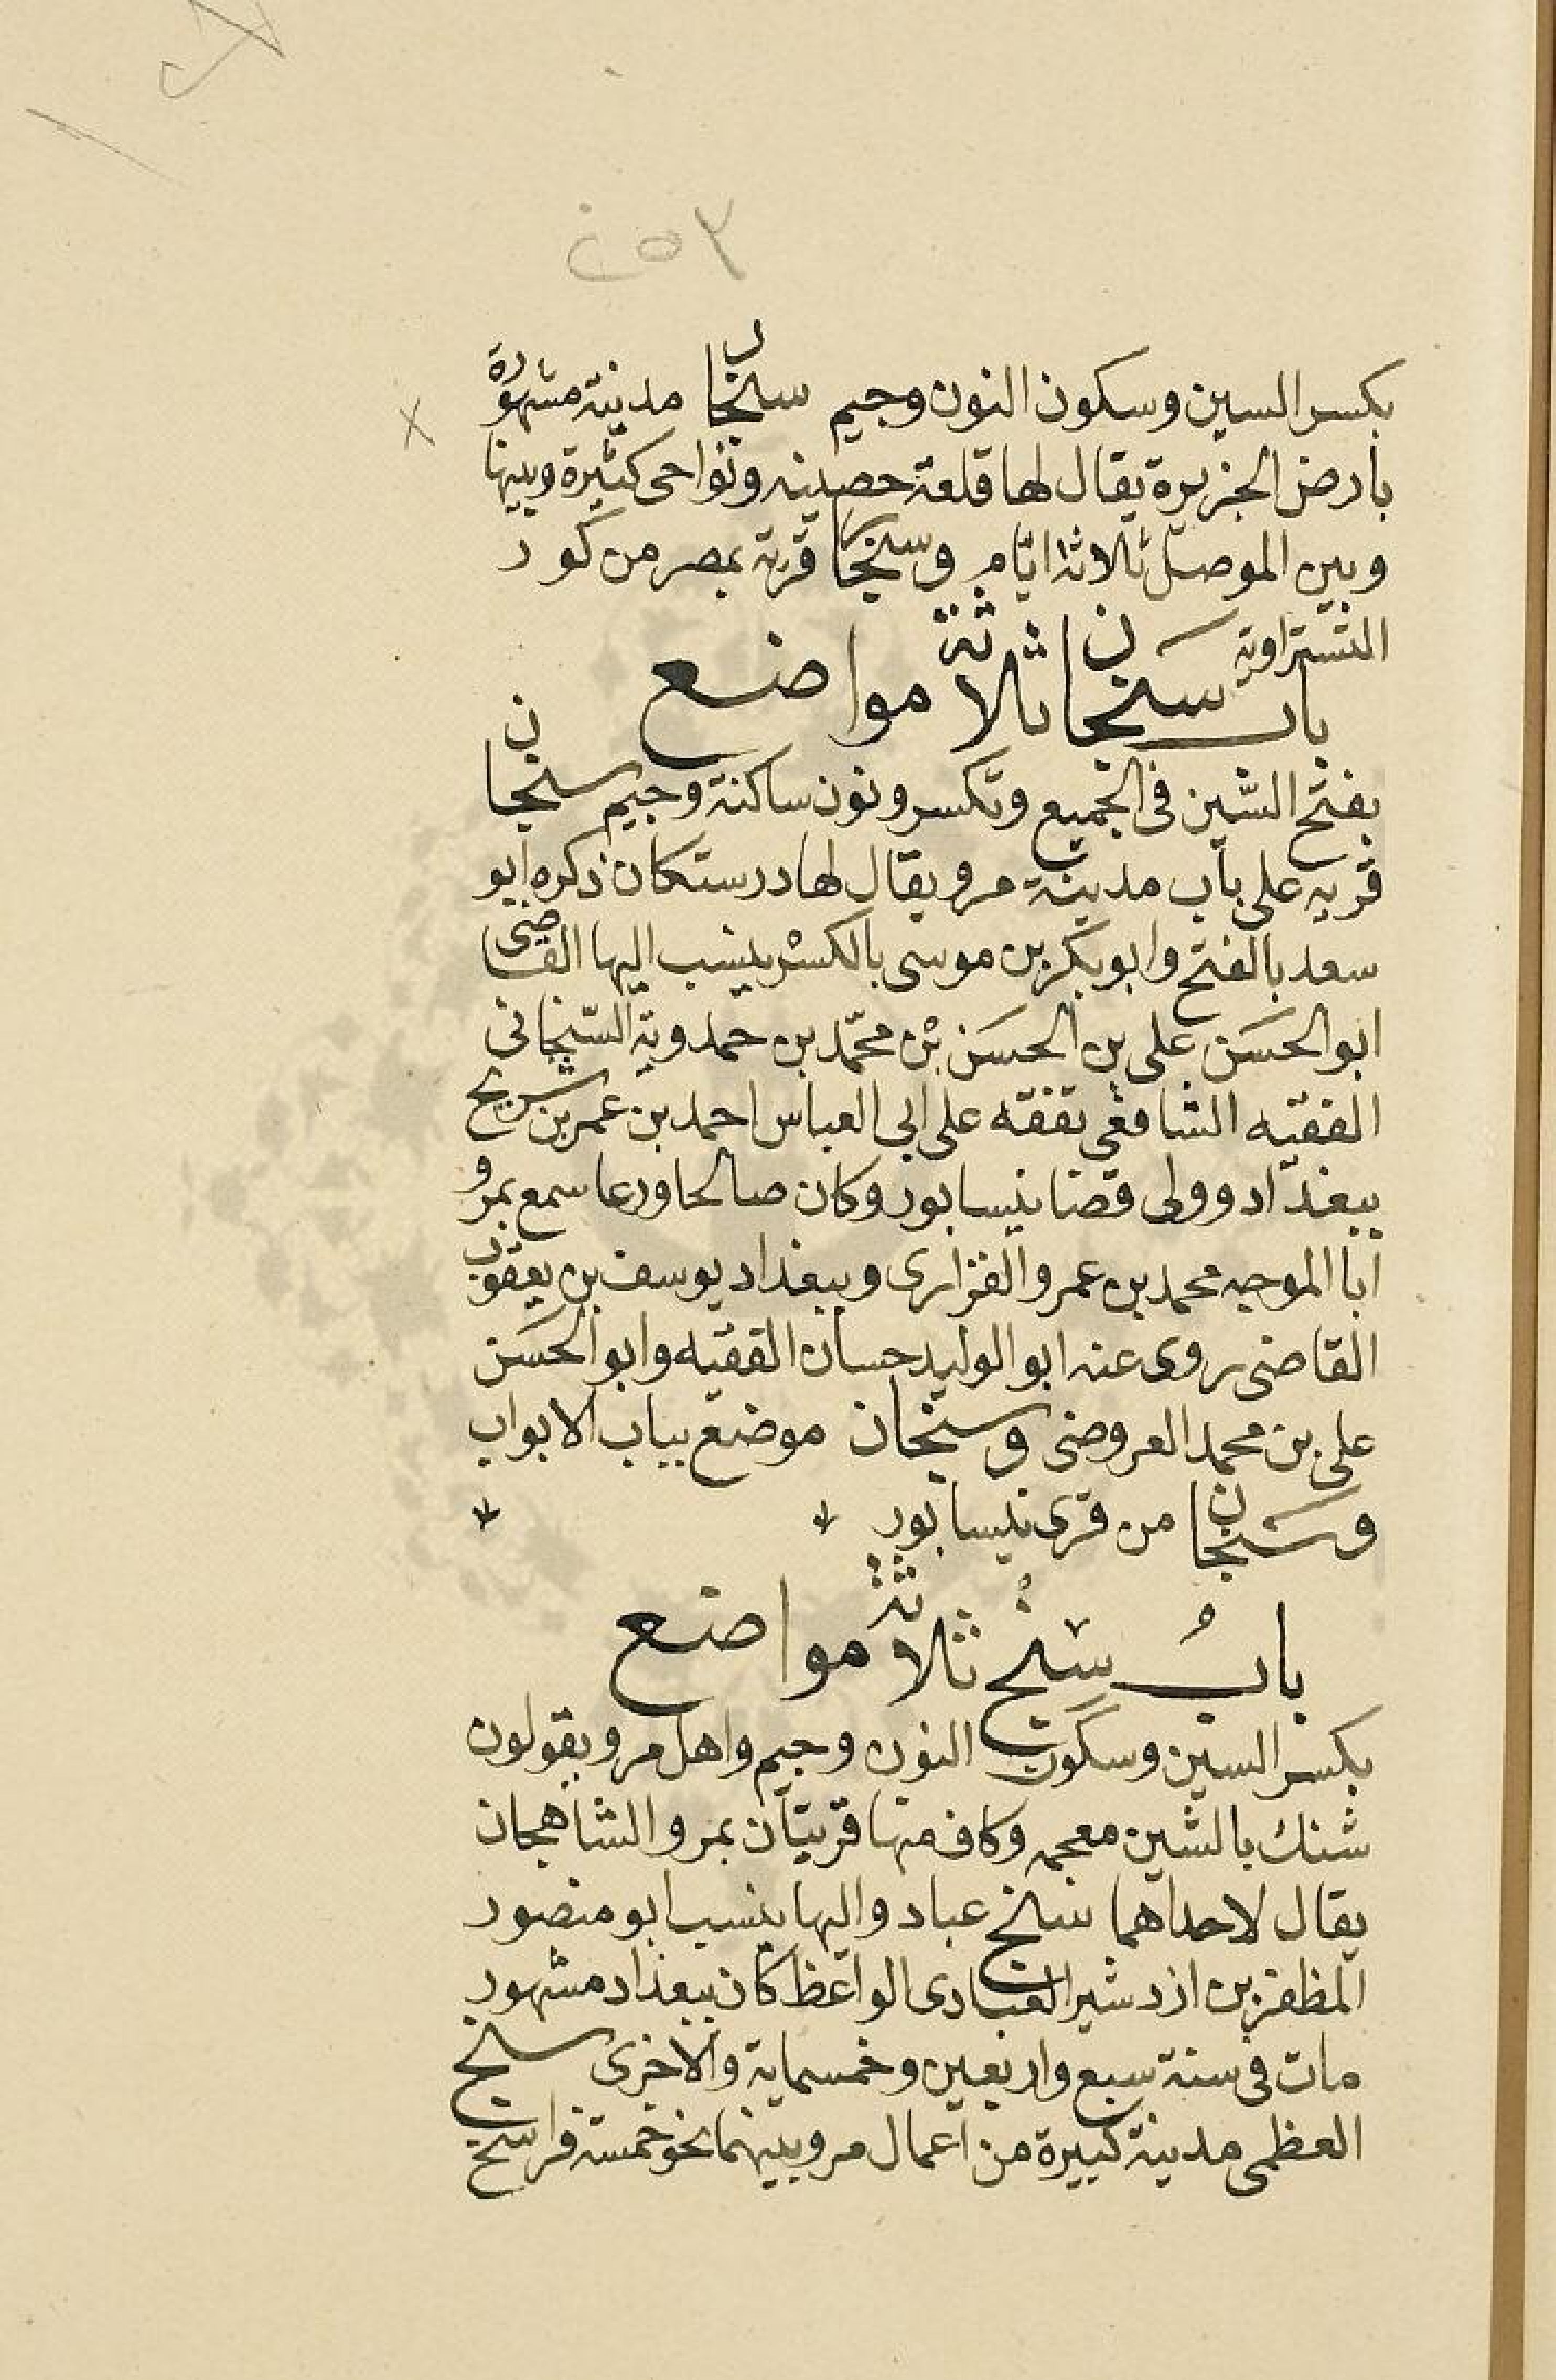 ٢٥٣
بكسر السين وسكون النون وجيم سنجار مدينة مشهورة
بارض الجزيرة يقال لها قلعة حصينه ونواحى كثيرة وبينها
وبين الموصل ثلاثة ايام وسنجار قرية بمصر من كور
النستراوية
باب سنجان ثلاثة مواضع
بفتح السّين فى الجميع وتكسر ونون ساكنة وجيم سنجان
قريه على باب مدينة مرو يقال لها درستكان ذكره ابو
سعد بالفتح وابو بكر بن موسى بالكسر ينسب اليها القاضى
ابو الحسَن على بن الحسَن بْن محمّد بن حمدوية السّنجانى
الفقيه الشافعى تفقه على ابى العباس احمد بن عمر بن سريج
ببغداد وولى قضا نيسابور وكان صالحا ورعا سمع بمرو
ابا الموجه محمد بن عمرو الفزارى وببغداد يوسف بن يعقوب
القاضى روى عنه ابو الوليد حسان الفقيه وابو الحسَن
على بن محمد العروضى وسنجان موضع بباب الابواب
وسنجان من قرى نيسابور
بابُ سنْج ثلاثة مواضع
بكسر السين وسكون النون وجيم واهل مرو يقولون
شنك بالشين معجمه وكاف منها قريتان بمرو الشاهجان
يقال لاحداهما سنج عباد واليها ينسب ابو منصور
المظفر بن ازدشير العبادى الواعظ كان ببغداد مشهور
مات فى سنة سبع واربعين وخمسماية والاخرى سنج
العظمى مدينة كبيرة من اعمال مرو بينهما نحو خمسة فراسخ